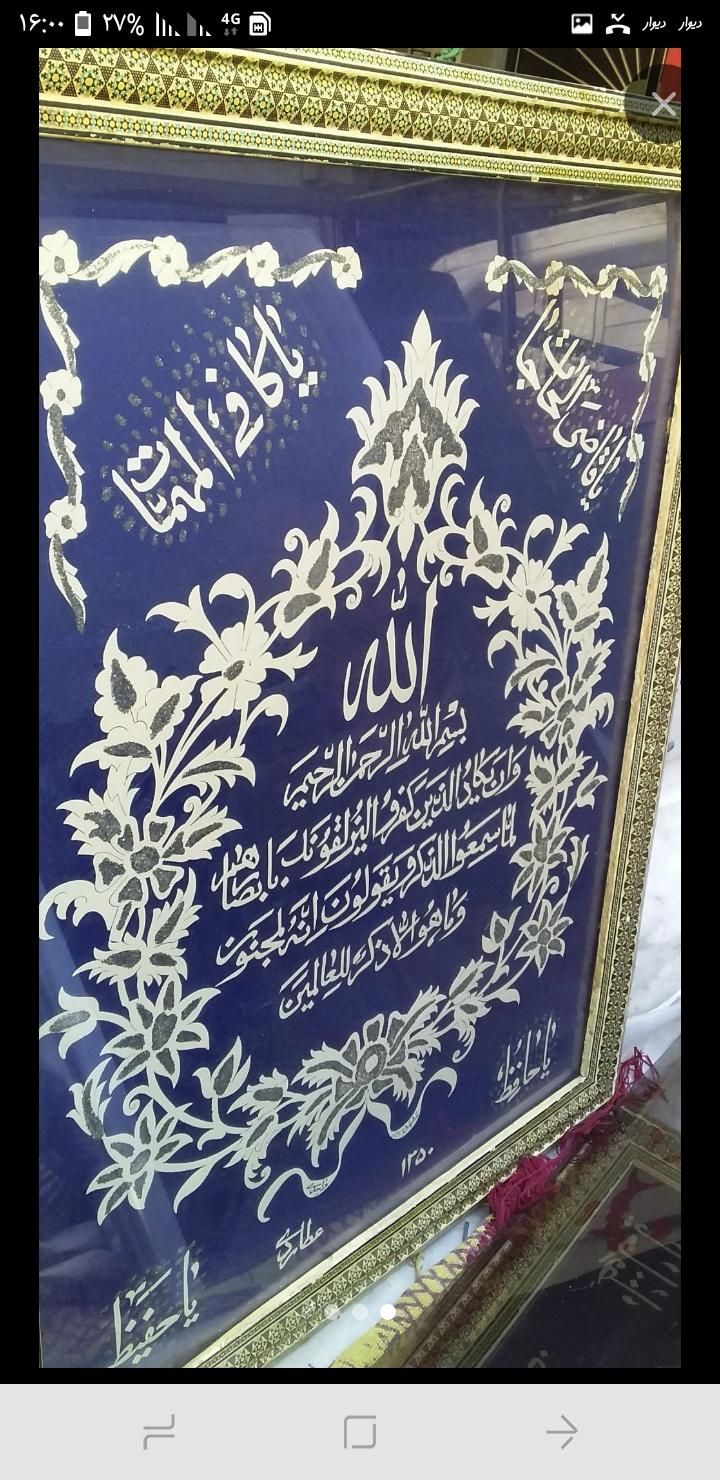 ۱۶:۰۰ ۲۷% 4G دیوار دیوار
یا قاضی الحاجات
یا کافی المهمات
الله
بسم الله الرحمن الرحیم
وان یکاد الذین کفروا لیزلقونک بابصارهم
لما سمعوا الذکر ویقولون انه لمجنون
وما هو الا ذکر للعالمین
یا حافظ
۱۳۵۰
عطاردی
یا حفیظ